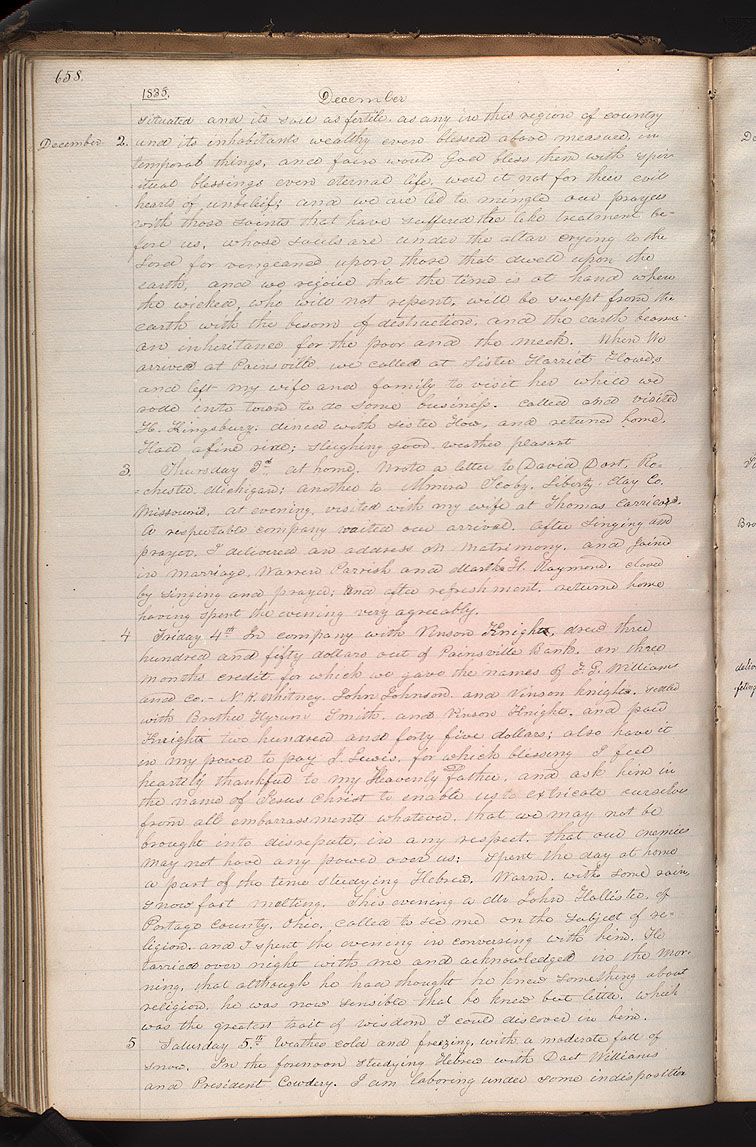 658.
1835. December
situated and its soil as fertile, as any in this region of country
December 2. and its inhabitants wealthy even blessed above measure, in
temporal things, and fain would God bless them with spir-
itual blessings even eternal life, were it not for their evil
hearts of unbeleif; and we are led to mingle our prayers
with those saints that have suffered the like treatment be-
fore us, whose souls are under the altar crying to the
Lord for vengeance upon those that dwell upon the
earth, and we rejoice that the time is at hand when
the wicked, who will not repent, will be swept from the
earth with the besom of destruction, and the earth become
an inheritance for the poor and the meek. When We
arrived at Painsville we called at Sister Harriet Howe's
and left my wife and family to visit her while we
rode into town to do some business. Called and visited
H. Kingsbury; dined with Sister How, and returned home.
Had a fine ride; sleighing good, weather pleasant
3. Thursday 3d at home. Wrote a letter to David Dort, Ro-
-chester, Michigan; another to Almira Scoby, Liberty, Clay Co.
Missouri, at evening, visited with my wife at Thomas Carrico's.
A respectable company waited our arrival. After Singing and
prayer, I delivered an address on Matrimony. and Joined
in marriage, Warren Parrish and Martha H. Raymond. closed
by singing and prayer; and after refreshment, returned home
having spent the evening very agreeably.
4 Friday 4th In company with Vinson Knight, drew three
hundred and fifty dollars out of Painsville Bank, on three
months credit, for which we gave the names of F. G. Williams
and co.- N. K. Whitney, John Johnson, and Vinson knight. settled
with Brother Hyrum Smith, and Vinson Knight, and paid
Knight two hundred and forty five dollars; also have it
in my power to pay J. Lewis, for which blessing I feel
heartily thankful to my Heavenly Father, and ask him in
the name of Jesus Christ to enable us to extricate ourselves
from all embarrassments whatever, that we may not be
brought into disrepute, in any respect, that our enemies
may not have any power over us; spent the day at home
a part of the time studying Hebrew. Warm, with some rain,
snow fast melting. This evening a Mr John Hollister, of
Portage County, Ohio, called to see me on the subject of re-
ligion, and I spent the evening in conversing with him. He
tarried over night with me and acknowledged in the mor-
ning, that although he had thought he knew something about
religion, he was now sensible that he knew but little, which
was the greatest trait of wisdom I could discover in him.
5 Saturday 5.th Weather cold and freezing, with a moderate fall of
snow. In the forenoon studying Hebrew with Doct Williams
and President Cowdery. I am laboring under some indisposition
De
Bro
deliv
feting